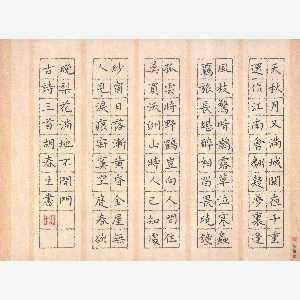 天秋月又滿城闕夜千重
還作江南會翻疑夢裏逢
風枝驚暗鵲露草泣寒蟲
羈旅長堪醉相留畏曉鐘
孤雲將野鶴豈向人間住
莫買沃洲山時人已知處
紗窗日落漸黃昏金屋無
人見淚痕寂寞空庭春欲
晚梨花滿地不開門
古詩三首胡春生書